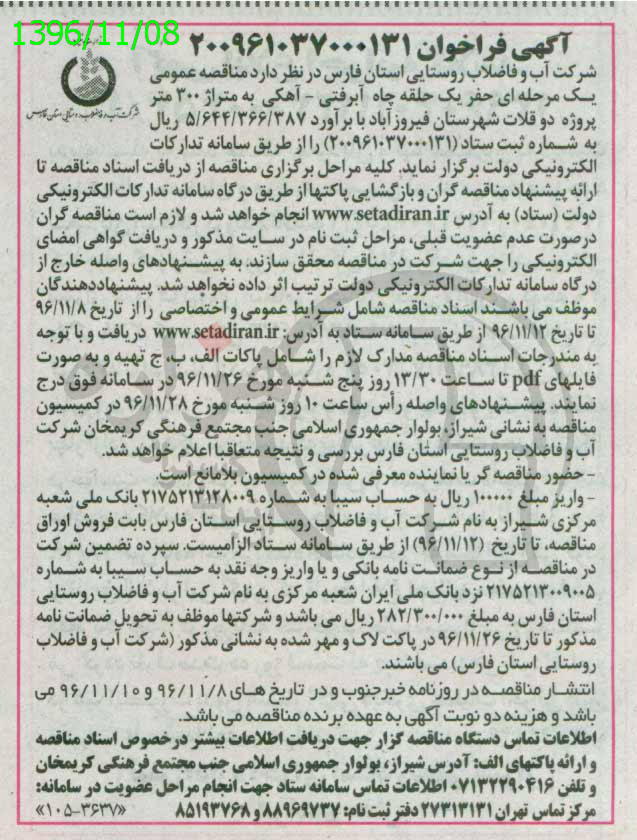 1396/11/08
آگهی فراخوان ۲۰۰۹۶۱۰۳۷۰۰۰۱۳۱
شرکت آب و فاضلاب روستایی استان فارس
شرکت آب و فاضلاب روستایی استان فارس در نظر دارد مناقصه عمومی
یک مرحله ای حفر یک حلقه چاه آبرفتی - آهکی به متراژ ۳۰۰ متر
پروژه دو قلات شهرستان فیروزآباد با برآورد ۵/۶۴۴/۳۶۶/۳۸۷ ریال
به شماره ثبت ستاد (۲۰۰۹۶۱۰۳۷۰۰۰۱۳۱) را از طریق سامانه تدارکات
الکترونیکی دولت برگزار نماید. کلیه مراحل برگزاری مناقصه از دریافت اسناد مناقصه تا
ارائه پیشنهاد مناقصه گران و بازگشایی پاکتها از طریق درگاه سامانه تدارکات الکترونیکی
دولت (ستاد) به آدرس www.setadiran.ir انجام خواهد شد و لازم است مناقصه گران
درصورت عدم عضویت قبلی، مراحل ثبت نام در سایت مذکور و دریافت گواهی امضای
الکترونیکی را جهت شرکت در مناقصه محقق سازند. به پیشنهادهای واصله خارج از
درگاه سامانه تدارکات الکترونیکی دولت ترتیب اثر داده نخواهد شد. پیشنهاددهندگان
موظف می باشند اسناد مناقصه شامل شرایط عمومی و اختصاصی را از تاریخ ۹۶/۱۱/۸
تا تاریخ ۹۶/۱۱/۱۲ از طریق سامانه ستاد به آدرس: www.setadiran.ir دریافت و با توجه
به مندرجات اسناد مناقصه مدارک لازم را شامل پاکات الف، ب، ج تهیه و به صورت
فایلهای pdf تا ساعت ۱۳/۳۰ روز پنج شنبه مورخ ۹۶/۱۱/۲۶ در سامانه فوق درج
نمایند. پیشنهادهای واصله رأس ساعت ۱۰ روز شنبه مورخ ۹۶/۱۱/۲۸ در کمیسیون
مناقصه به نشانی شیراز، بولوار جمهوری اسلامی جنب مجتمع فرهنگی کریمخان شرکت
آب و فاضلاب روستایی استان فارس بررسی و نتیجه متعاقبا اعلام خواهد شد.
- حضور مناقصه گر یا نماینده معرفی شده در کمیسیون بلامانع است.
- واریز مبلغ ۱۰۰۰۰۰ ریال به حساب سیبا به شماره ۲۱۷۵۲۱۳۱۲۸۰۰۹ بانک ملی شعبه
مرکزی شیراز به نام شرکت آب و فاضلاب روستایی استان فارس بابت فروش اوراق
مناقصه، تا تاریخ (۹۶/۱۱/۱۲) از طریق سامانه ستاد الزامیست. سپرده تضمین شرکت
در مناقصه از نوع ضمانت نامه بانکی و یا واریز وجه نقد به حساب سیبا به شماره
۲۱۷۵۲۱۳۰۰۹۰۰۵ نزد بانک ملی ایران شعبه مرکزی به نام شرکت آب و فاضلاب روستایی
استان فارس به مبلغ ۲۸۲/۳۰۰/۰۰۰ ریال می باشد و شرکتها موظف به تحویل ضمانت نامه
مذکور تا تاریخ ۹۶/۱۱/۲۶ در پاکت لاک و مهر شده به نشانی مذکور (شرکت آب و فاضلاب
روستایی استان فارس) می باشند.
انتشار مناقصه در روزنامه خبرجنوب و در تاریخ های ۹۶/۱۱/۸ و ۹۶/۱۱/۱۰ می
باشد و هزینه دو نوبت آگهی به عهده برنده مناقصه می باشد.
اطلاعات تماس دستگاه مناقصه گزار جهت دریافت اطلاعات بیشتر درخصوص اسناد مناقصه
و ارائه پاکتهای الف: آدرس شیراز، بولوار جمهوری اسلامی جنب مجتمع فرهنگی کریمخان
و تلفن ۰۷۱۳۲۲۹۰۴۱۶ اطلاعات تماس سامانه ستاد جهت انجام مراحل عضویت در سامانه:
مرکز تماس تهران ۲۷۳۱۳۱۳۱ دفتر ثبت نام: ۸۸۹۶۹۷۳۷ و ۸۵۱۹۳۷۶۸ «۱۰۵-۳۶۳۷»